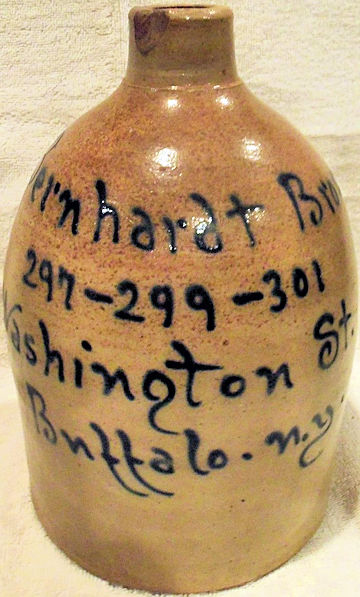 Bernhardt Bro
297-299-301
Washington St.
Buffalo. n.y.